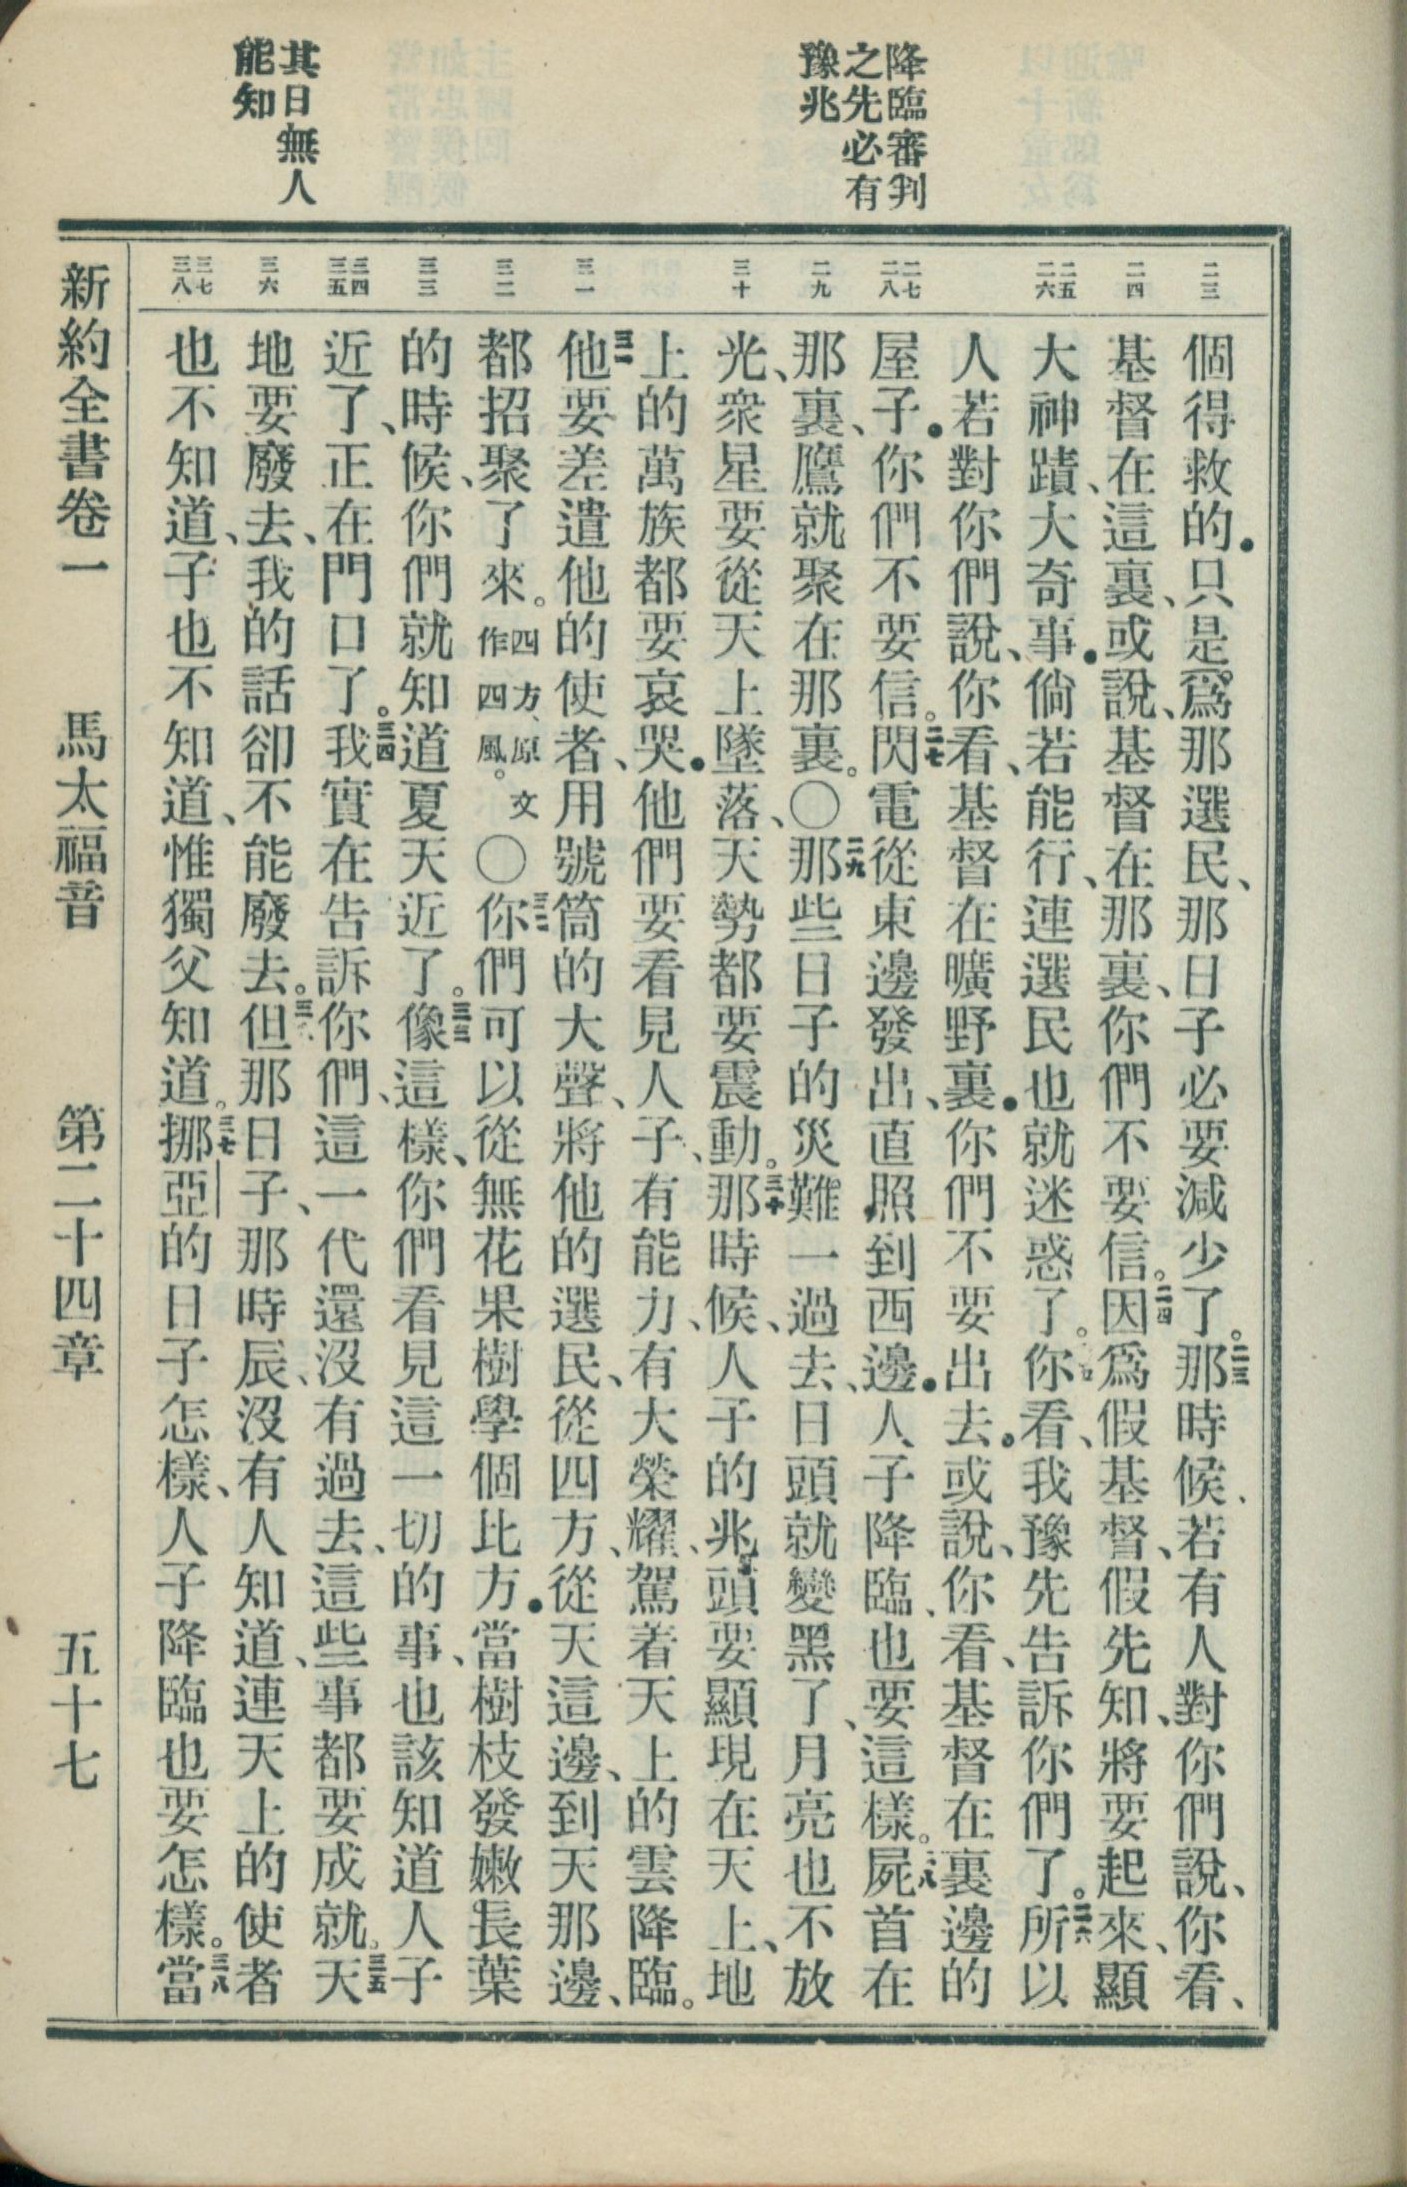 降臨審判
之先必有
豫兆
其日無人
能知
二三
二四
二五
二六
二七
二八
二九
三十
三一
三二
三三
三四
三五
三六
三七
三八
個得救的．只是爲那選民、那日子必要減少了。二三那時候、若有人對你們說、你看、
基督在這裏、或說、基督在那裏、你們不要信。二四因爲假基督、假先知、將要起來、顯
大神蹟、大奇事．倘若能行、連選民也就迷惑了。你看、我豫先告訴你們了。二六所以
人若對你們說、你看、基督在曠野裏．你們不要出去．或說、你看、基督在裏邊的
屋子．你們不要信。二七閃電從東邊發出、直照到西邊．人子降臨、也要這樣。二八屍首在
那裏、鷹就聚在那裏。〇二九那些日子的災難一過去、日頭就變黑了、月亮也不放
光、衆星要從天上墜落、天勢都要震動。三十那時候、人子的兆頭要顯現在天上、地
上的萬族都要哀哭．他們要看見人子、有能力、有大榮耀、駕着天上的雲降臨。
三一他要差遣他的使者、用號筒的大聲、將他的選民、從四方、從天這邊、到天那邊、
都招聚了來。四方、原文作四風。〇三二你們可以從無花果樹學個比方．當樹枝發嫩長葉
的時候、你們就知道夏天近了。三三像這樣、你們看見這一切的事、也該知道人子
近了、正在門口了。三四我實在告訴你們、這一代還沒有過去、這些事都要成就。三五天
地要廢去、我的話卻不能廢去。三六但那日子、那時辰、沒有人知道、連天上的使者
也不知道、子也不知道、惟獨父知道。三七挪亞的日子怎樣、人子降臨也要怎樣。三八當
新約全書卷一　馬太福音　第二十四章　五十七